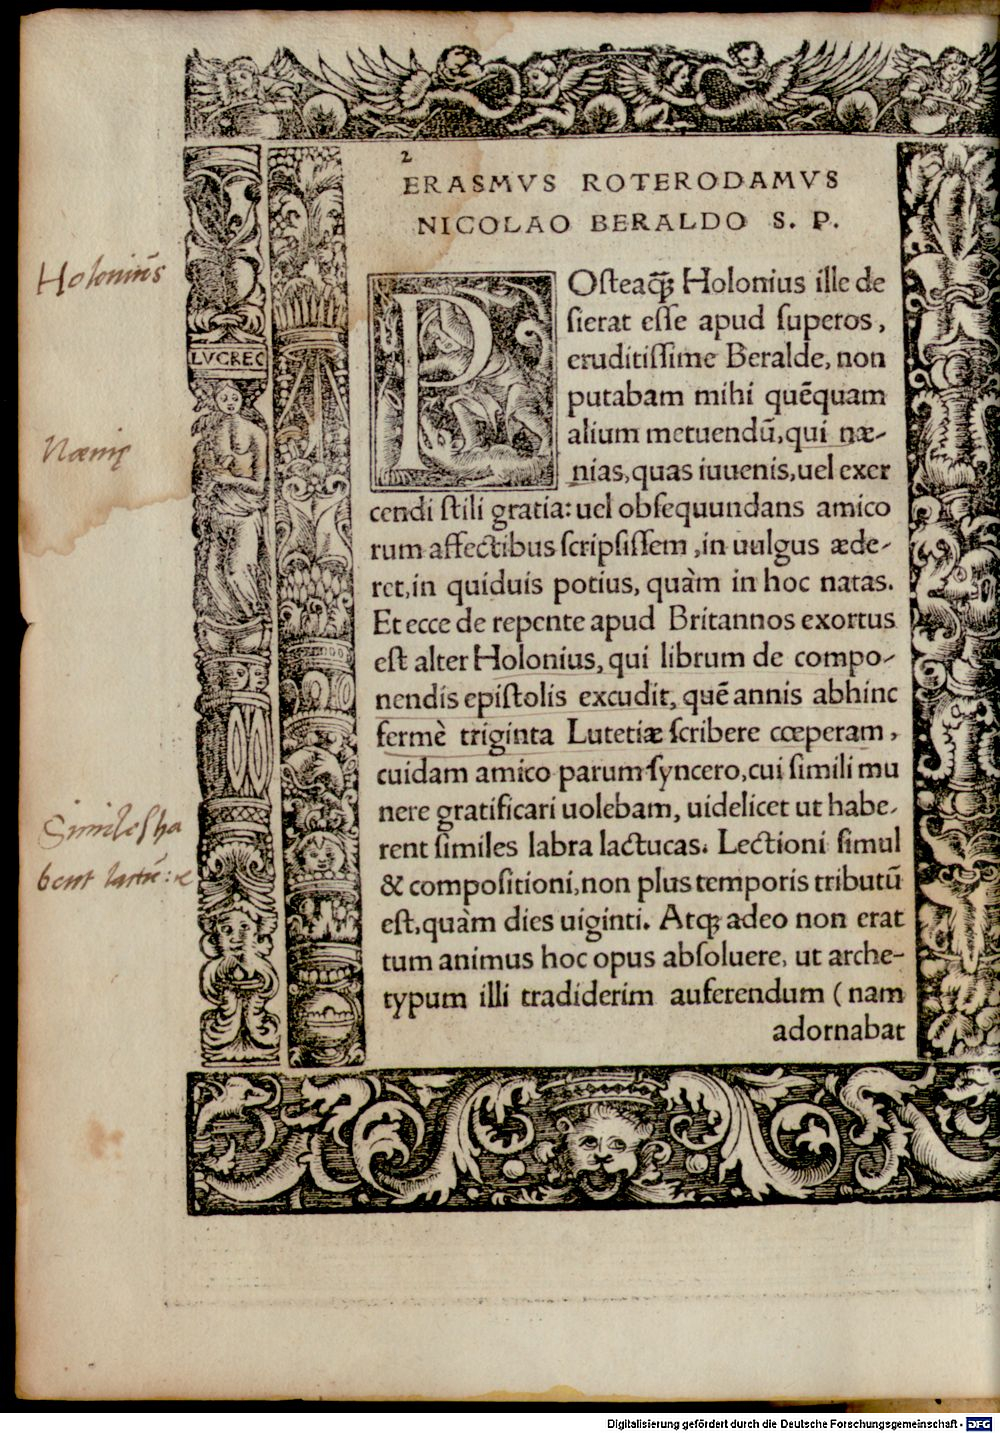 2
ERASMVS ROTERODAMVS
NICOLAO BERALDO S. P.
POſteaq̃ꝫ Holonius ille de
ſierat eſſe apud ſuperos,
eruditiſſime Beralde, non
putabam mihi quẽquam
alium metuendũ, qui næ-
nias, quas iuuenis, uel exer
cendi ſtili gratia: uel obſequundans amico
rum affectibus ſcripſiſſem, in uulgus æde-
ret, in quiduis potius, quàm in hoc natas.
Et ecce de repente apud Britannos exortus
eſt alter Holonius, qui librum de compo-
nendis epiſtolis excudit, quẽ annis abhinc
fermè triginta Lutetiæ ſcribere cœperam,
cuidam amico parum ſyncero, cui ſimili mu
nere gratificari uolebam, uidelicet ut habe-
rent ſimiles labra lactucas. Lectioni ſimul
& compoſitioni, non plus temporis tributũ
eſt, quàm dies uiginti. Atqꝫ adeo non erat
tum animus hoc opus abſoluere, ut arche-
typum illi tradiderim auferendum (nam
adornabat
Holonius
Nænię
Similes ha
bent lactu: &c
LVCREC
Digitalisierung gefördert durch die Deutsche Forschungsgemeinschaft - DFG